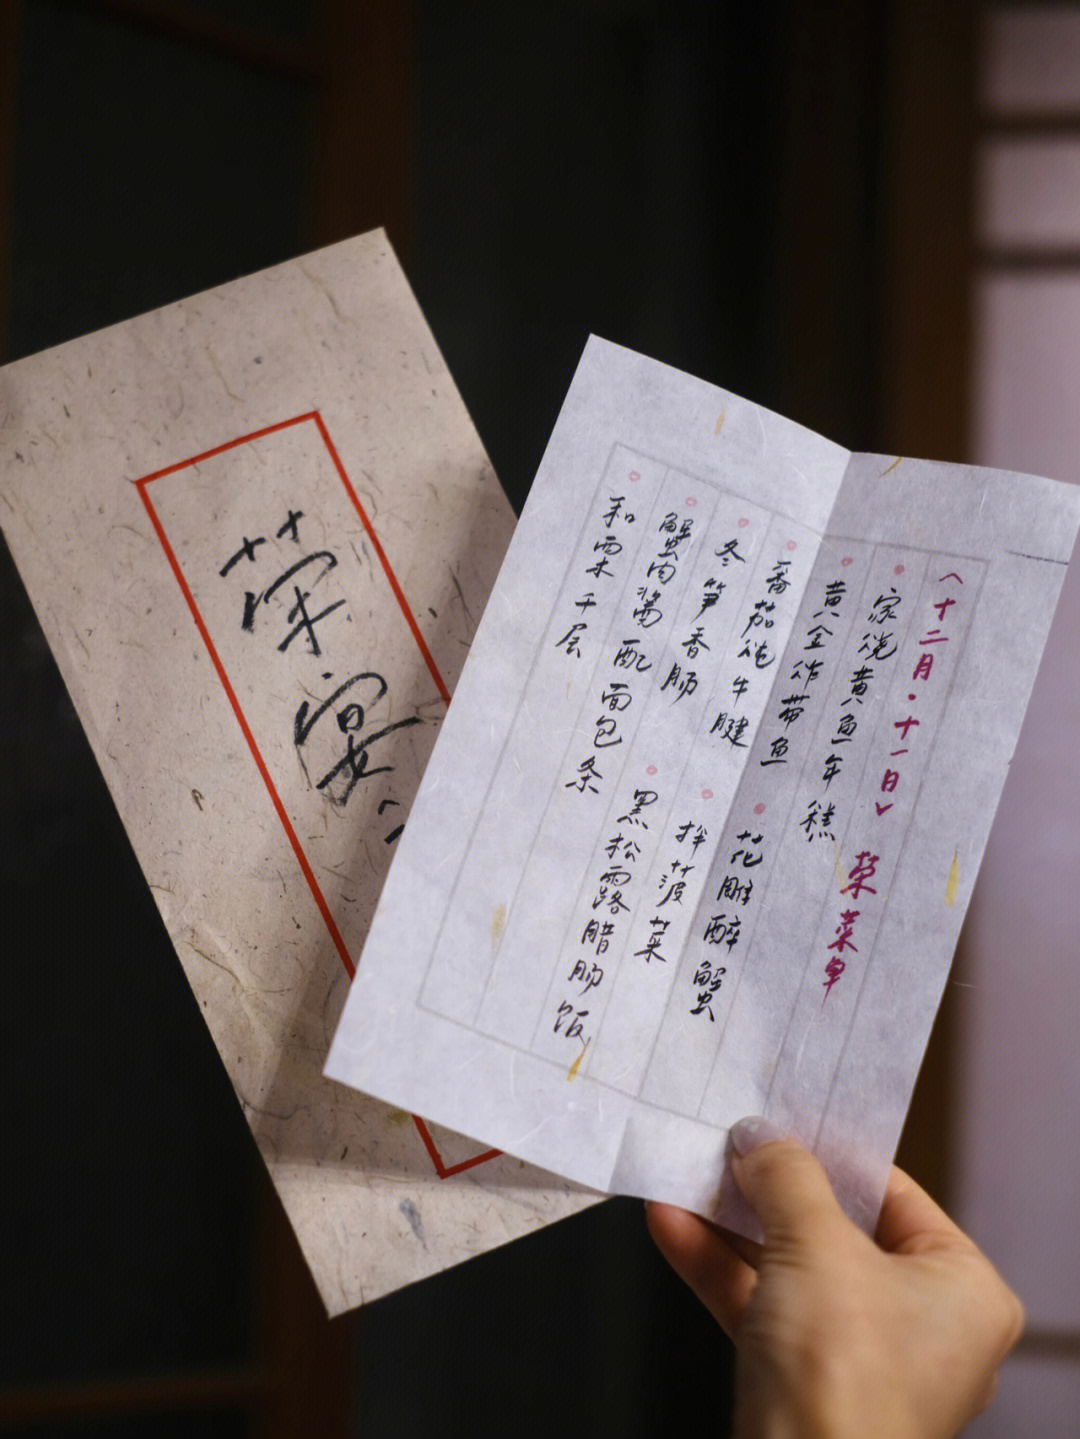 荣宴
〈十二月·十一日〉
荣菜单
家烧黄鱼年糕
黄金炸带鱼
番茄炖牛腱
花雕醉蟹
冬笋香肠
拌菠菜
蟹肉酱配面包条
黑松露腊肠饭
和栗千层